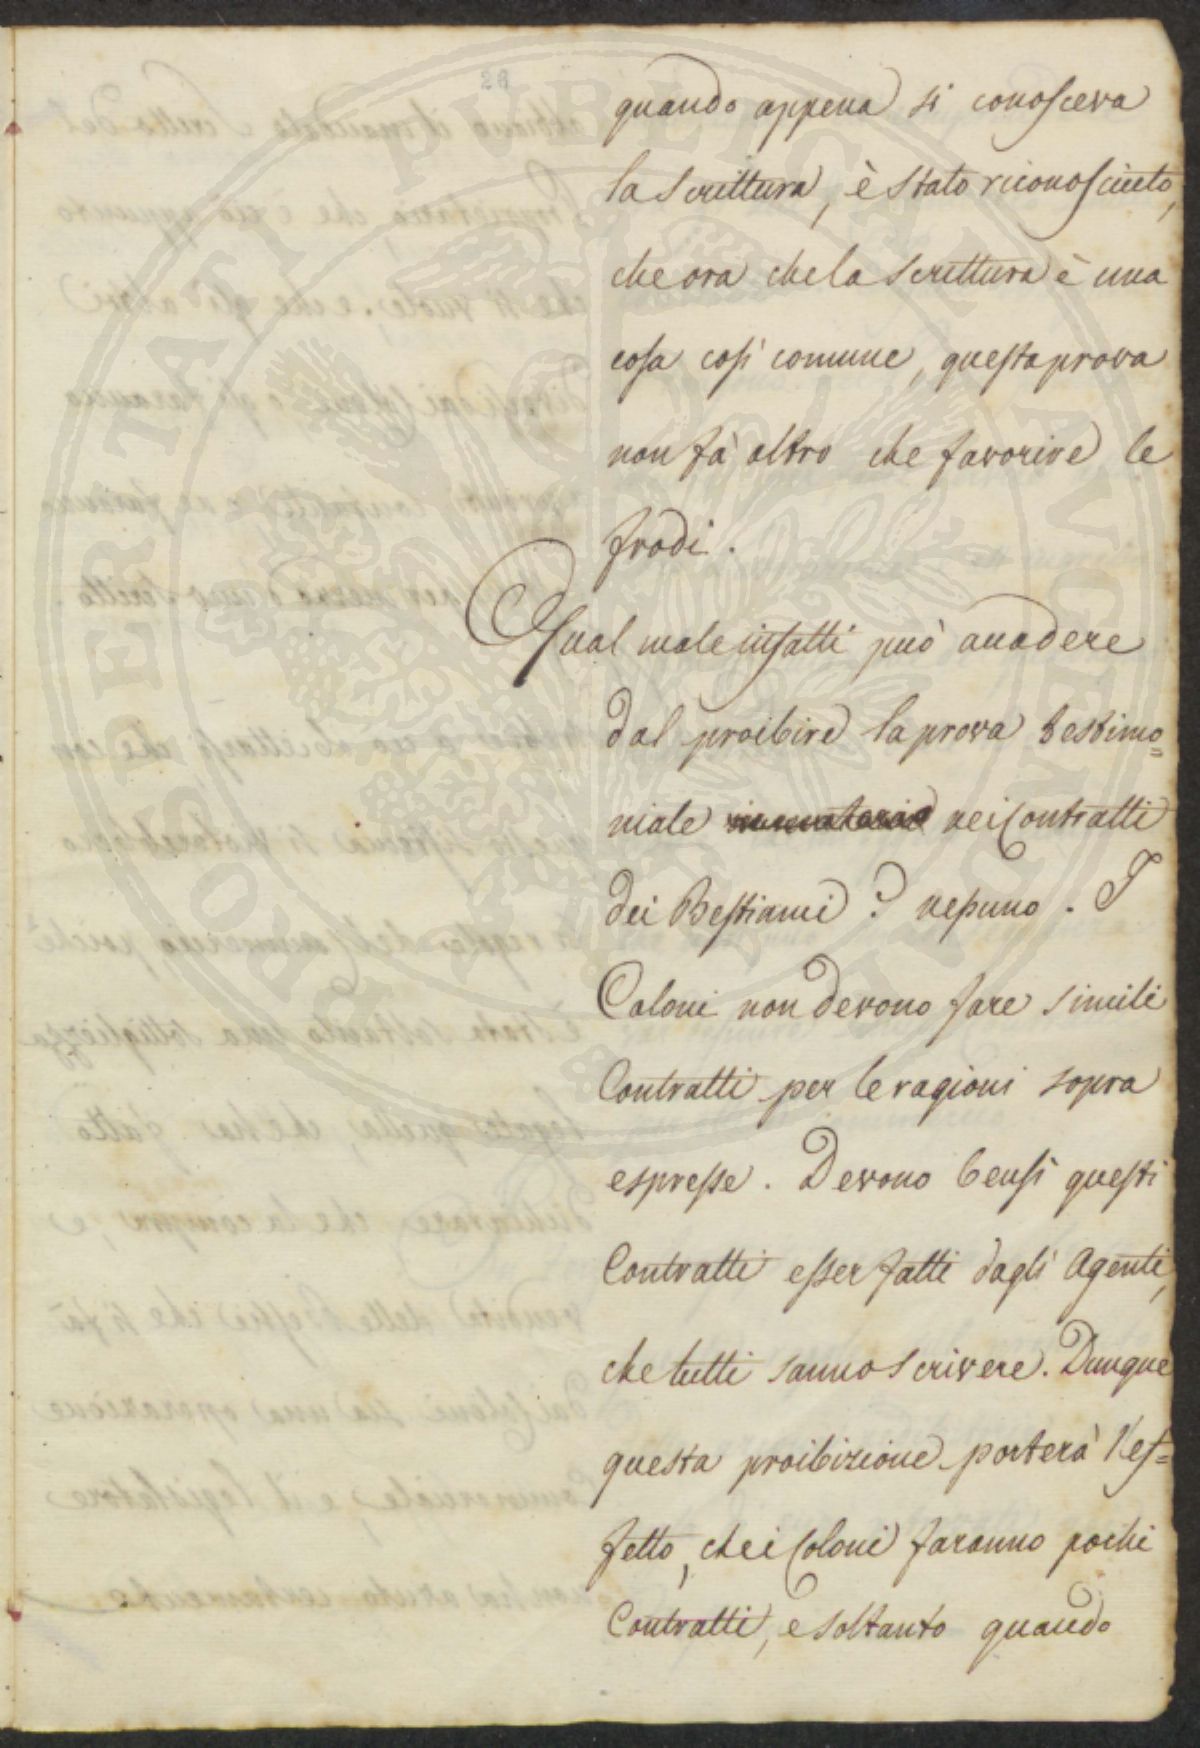 26
quando appena si conosceva
la Scrittura, è stato riconosciuto,
che ora che la Scrittura è una
cosa così comune, questa prova
non fà altro che favorire le
frodi.
Qual male infatti può accadere
dal proibire la prova testimo=
niale nei Contratti
dei Bestiami? nessuno. I
Coloni non devono fare simili
Contratti per le ragioni sopra
espresse. Devono bensì questi
Contratti esser fatti dagli Agenti,
che tutti sanno scrivere. Dunque
questa proibizione porterà l'ef=
fetto, che i Coloni faranno pochi
Contratti, e soltanto quando
PROSPERITATI PUBLICAE AUGENDAE